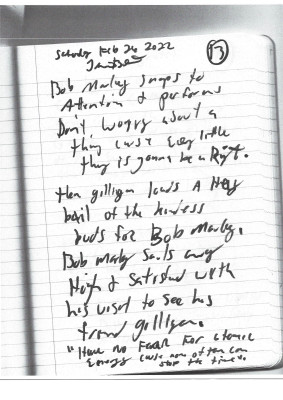 Saturday Feb 26 2022
13
Bob Marley snaps to
Attention & performs
Don't worry about a
thing cause Every little
thing is gonna be a Right.
then gilligan loads A Hey
bail of the
buds for Bob Marley.
Bob Marly Sails away
High & Satisfied with
his visit to see his
friend gilligan.
"Have no Fear For atomic
Energy cause non of them can
stop the time".